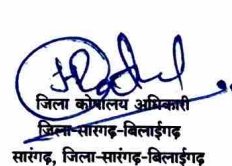 जिला कोषालय अधिकारी
जिला-सारंगढ़-बिलाईगढ़
सारंगढ़, जिला-सारंगढ़-बिलाईगढ़